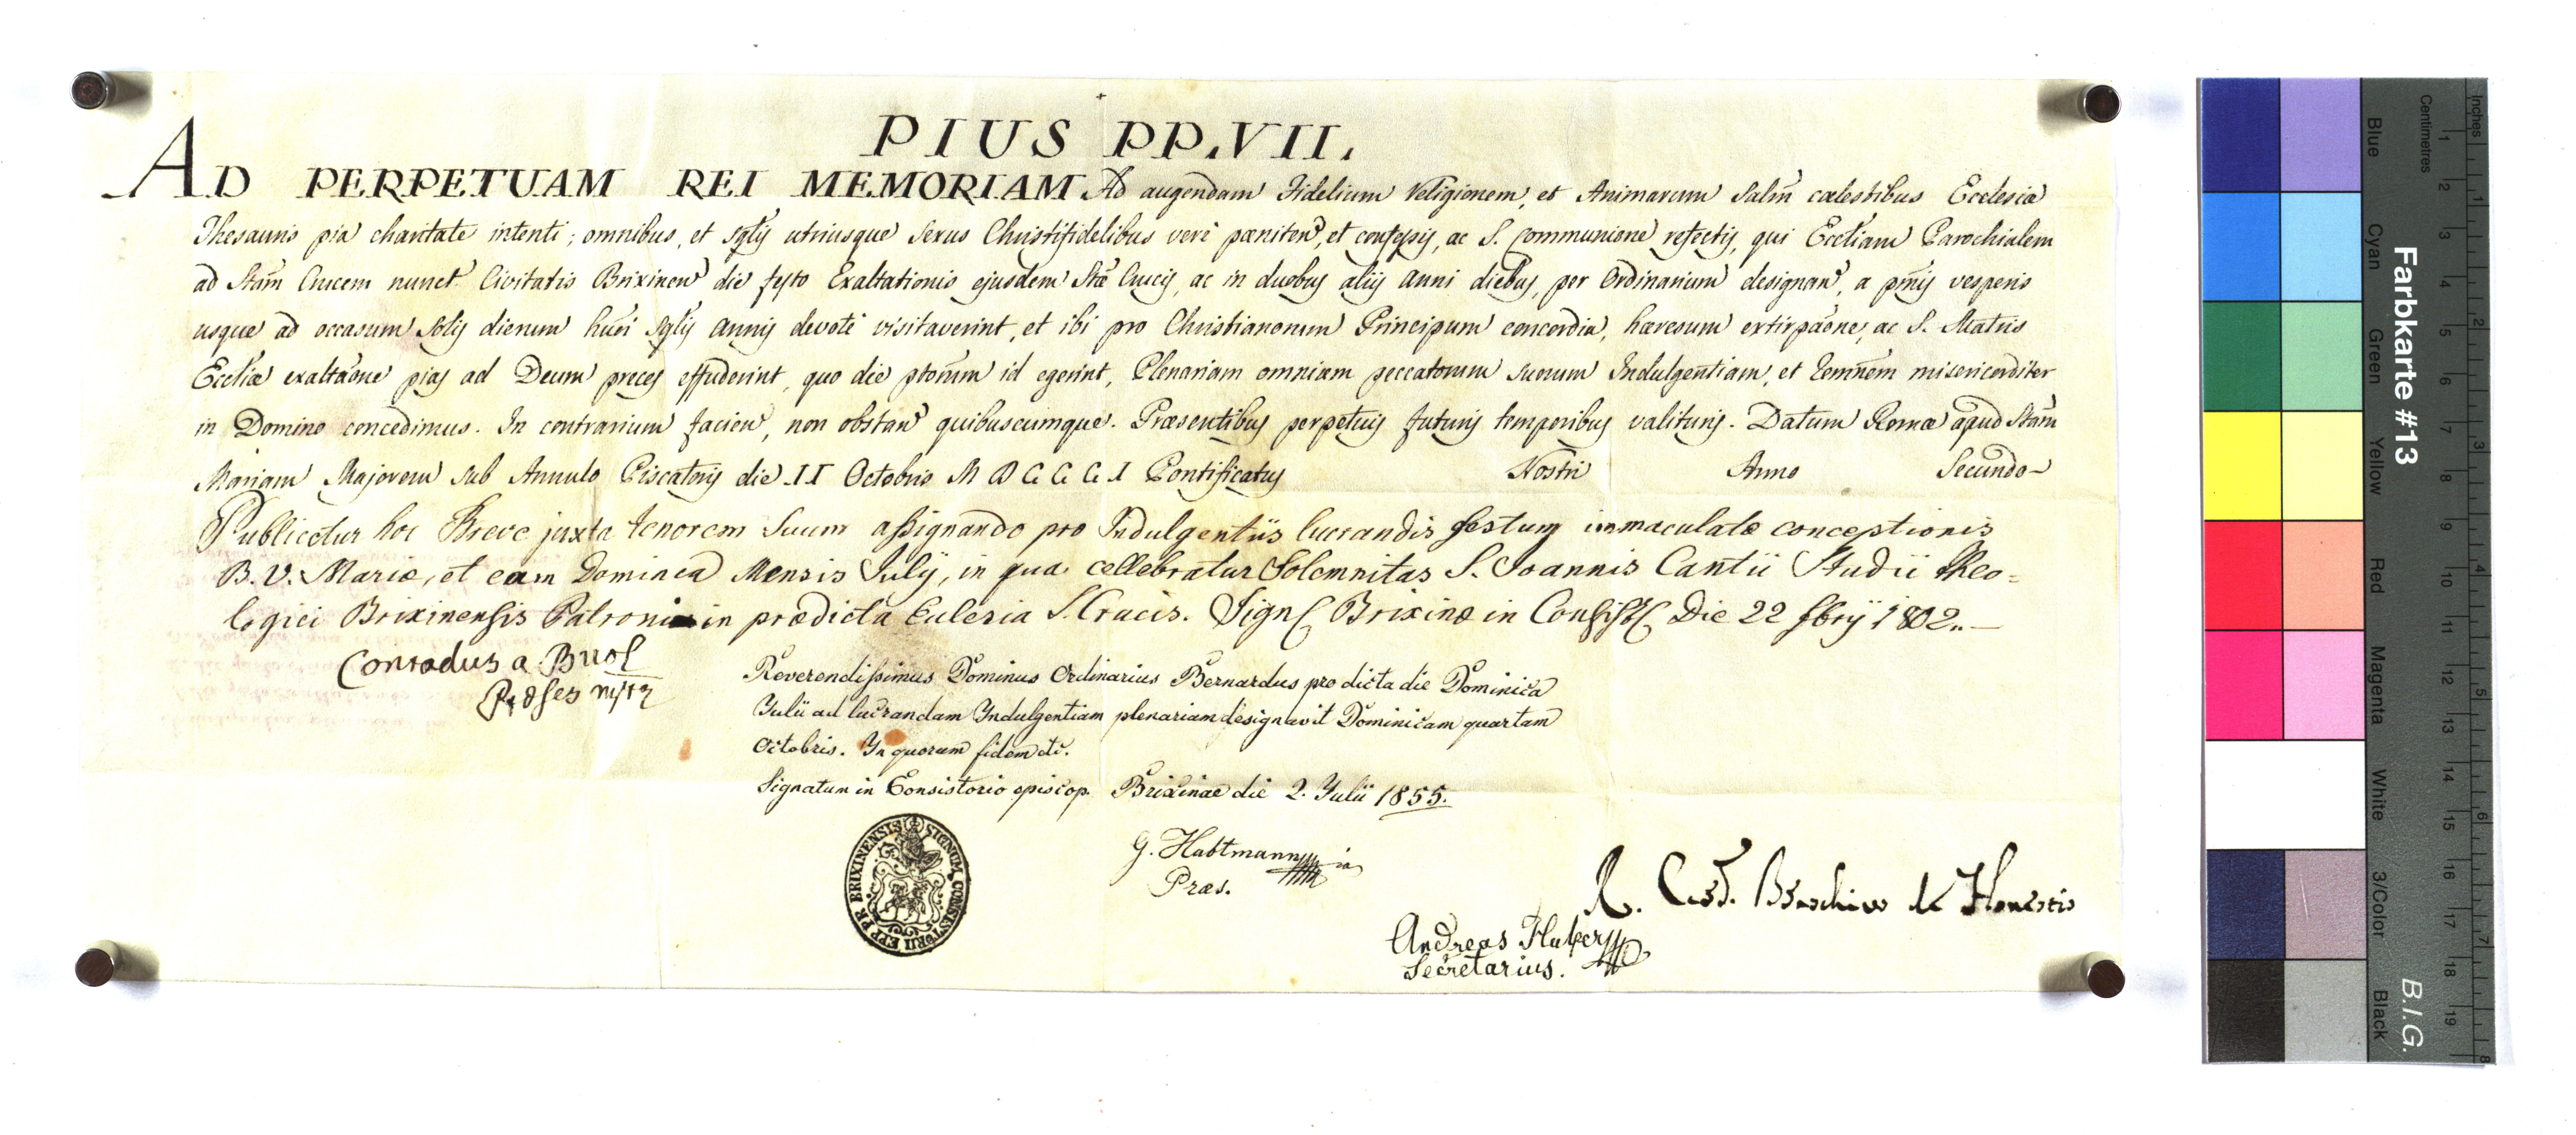 PIUS PP. VII.
AD PERPETUAM REI MEMORIAM Ad augendam Fidelium Religionem, et Animarum Salm̃ cælestibus Ecclesiæ
Thesauris pia charitate intenti; omnibus, et sglis utriusque Sexus Christifidelibus verè pæniten, et confessis, ac S. Communione refectis, qui Eccliam Parochialem
ad Stam̃ Crucem nunct Civitatis Brixinen die festo Exaltationis ejusdem Stæ Crucis, ac in duobus aliis anni diebus, per Ordinarium designan, a pm̃is vesperis
usque ad occasum solis dierum huĩ sglis annis devotè visitaverint, et ibi pro Christianorum Principum concordia, hæresum extirpãone, ac S. Matris
Eccliæ exaltãone pias ad Deum preces effuderint, quo die ptorum̃ id egerint, Plenariam omnium peccatorum suorum Indulgentiam, et remñem misericorditer
in Domino concedimus. In contrarium facien, non obstan quibuscumque. Præsentibus perpetuis futuris temporibus valituris. Datum Romæ apud Stam̃
Mariam Majorem sub Annulo Piscatoris die II Octobris M D C C C I Pontificatus Nostri Anno Secundo
Publicetur hoc Breve juxta tenorem suum assignando pro Indulgentiis lucrandis festum immaculatæ conceptionis
B. V. Mariæ, et eam Dominica Mensis Julij, in qua cellebratur Solemnitas S. Joannis Cantii Studii Theo=
logici Brixinensis Patroni in prædicta Eclesia S. Crucis. Sign Brixinæ in Consist Die 22 1802.
Conradus a Buol
Præses
Reverendissimus Dominus Ordinarius Bernardus pro dicta die Dominica
Julii ad lucrandam Indulgentiam plenariam designavit Dominicam quartam
Octobris. In quorum fidem etc.
Signatum in Consistorio episcop. Brixinae die 2. Julii 1855.
SIGNUM CONSISTORII EPP PR BRIXINENSIS
G. Habtmann
Præs.
R. Card. Braschius de Honestis
Andreas Huber
Secretarius.
Farbkarte #13
B.I.G.
Inches
Centimetres
1 2 3 4 5 6 7 8 9 10 11 12 13 14 15 16 17 18 19
1 2 3 4 5 6 7 8
Blue
Cyan
Green
Yellow
Red
Magenta
White
3/Color
Black